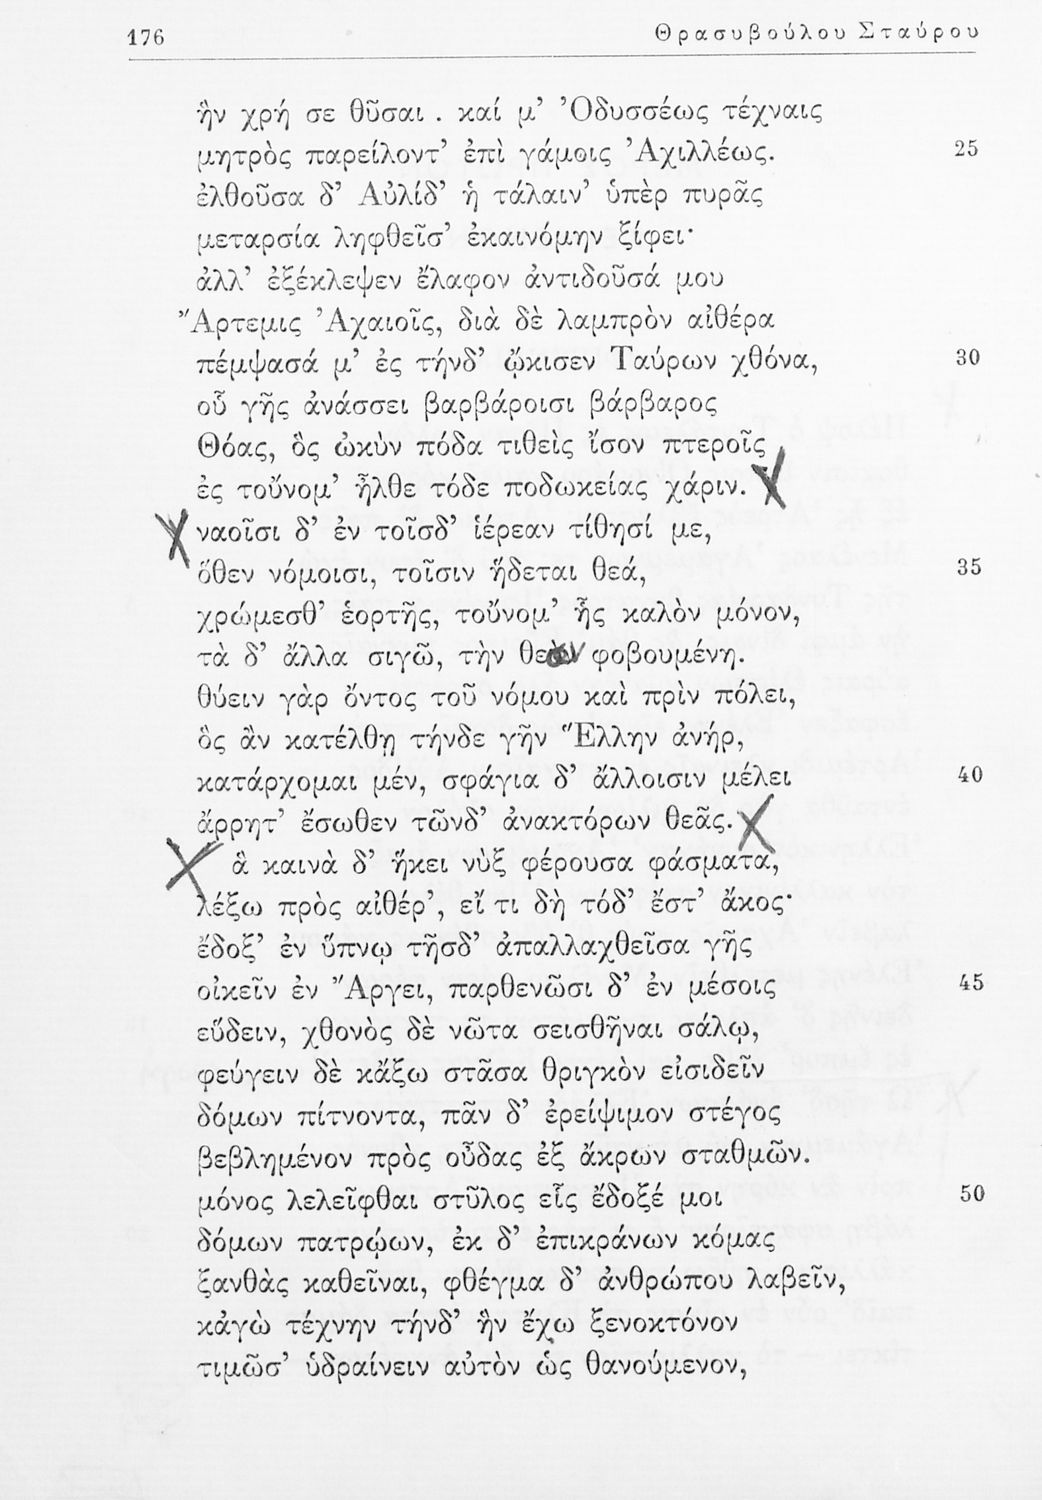 176 Θρασυβούλου Σταύρου
ἣν χρή σε θῦσαι . καί μ’ Ὀδυσσέως τέχναις
μητρὸς παρείλοντ’ ἐπὶ γάμοις Ἀχιλλέως. 25
ἐλθοῦσα δ’ Αὐλίδ’ ἡ τάλαιν’ ὑπὲρ πυρᾶς
μεταρσία ληφθεῖσ’ ἐκαινόμην ξίφει·
ἀλλ’ ἐξέκλεψεν ἔλαφον ἀντιδοῦσά μου
Ἄρτεμις Ἀχαιοῖς, διὰ δὲ λαμπρὸν αἰθέρα
πέμψασά μ’ ἐς τήνδ’ ᾤκισεν Ταύρων χθόνα, 30
οὗ γῆς ἀνάσσει βαρβάροισι βάρβαρος
Θόας, ὃς ὠκὺν πόδα τιθεὶς ἴσον πτεροῖς
ἐς τοὔνομ’ ἦλθε τόδε ποδωκείας χάριν.
ναοῖσι δ’ ἐν τοῖσδ’ ἱέρεαν τίθησί με,
ὅθεν νόμοισι, τοῖσιν ἥδεται θεά, 35
χρώμεσθ’ ἑορτῆς, τοὔνομ’ ἧς καλὸν μόνον,
τὰ δ’ ἄλλα σιγῶ, τὴν φοβουμένη.
θύειν γὰρ ὄντος τοῦ νόμου καὶ πρὶν πόλει,
ὃς ἂν κατέλθῃ τήνδε γῆν Ἕλλην ἀνήρ,
κατάρχομαι μέν, σφάγια δ’ ἄλλοισιν μέλει 40
ἄρρητ’ ἔσωθεν τῶνδ’ ἀνακτόρων θεᾶς.
ἃ καινὰ δ’ ἥκει νὺξ φέρουσα φάσματα,
λέξω πρὸς αἰθέρ’, εἴ τι δὴ τόδ’ ἔστ’ ἄκος·
ἔδοξ’ ἐν ὕπνῳ τῆσδ’ ἀπαλλαχθεῖσα γῆς
οἰκεῖν ἐν Ἄργει, παρθενῶσι δ’ ἐν μέσοις 45
εὕδειν, χθονὸς δὲ νῶτα σεισθῆναι σάλῳ,
φεύγειν δὲ κἄξω στᾶσα θριγκὸν εἰσιδεῖν
δόμων πίτνοντα, πᾶν δ’ ἐρείψιμον στέγος
βεβλημένον πρὸς οὖδας ἐξ ἄκρων σταθμῶν.
μόνος λελεῖφθαι στῦλος εἷς ἔδοξέ μοι 50
δόμων πατρῴων, ἐκ δ’ ἐπικράνων κόμας
ξανθὰς καθεῖναι, φθέγμα δ’ ἀνθρώπου λαβεῖν,
κἀγὼ τέχνην τήνδ’ ἣν ἔχω ξενοκτόνον
τιμῶσ’ ὑδραίνειν αὐτὸν ὡς θανούμενον,